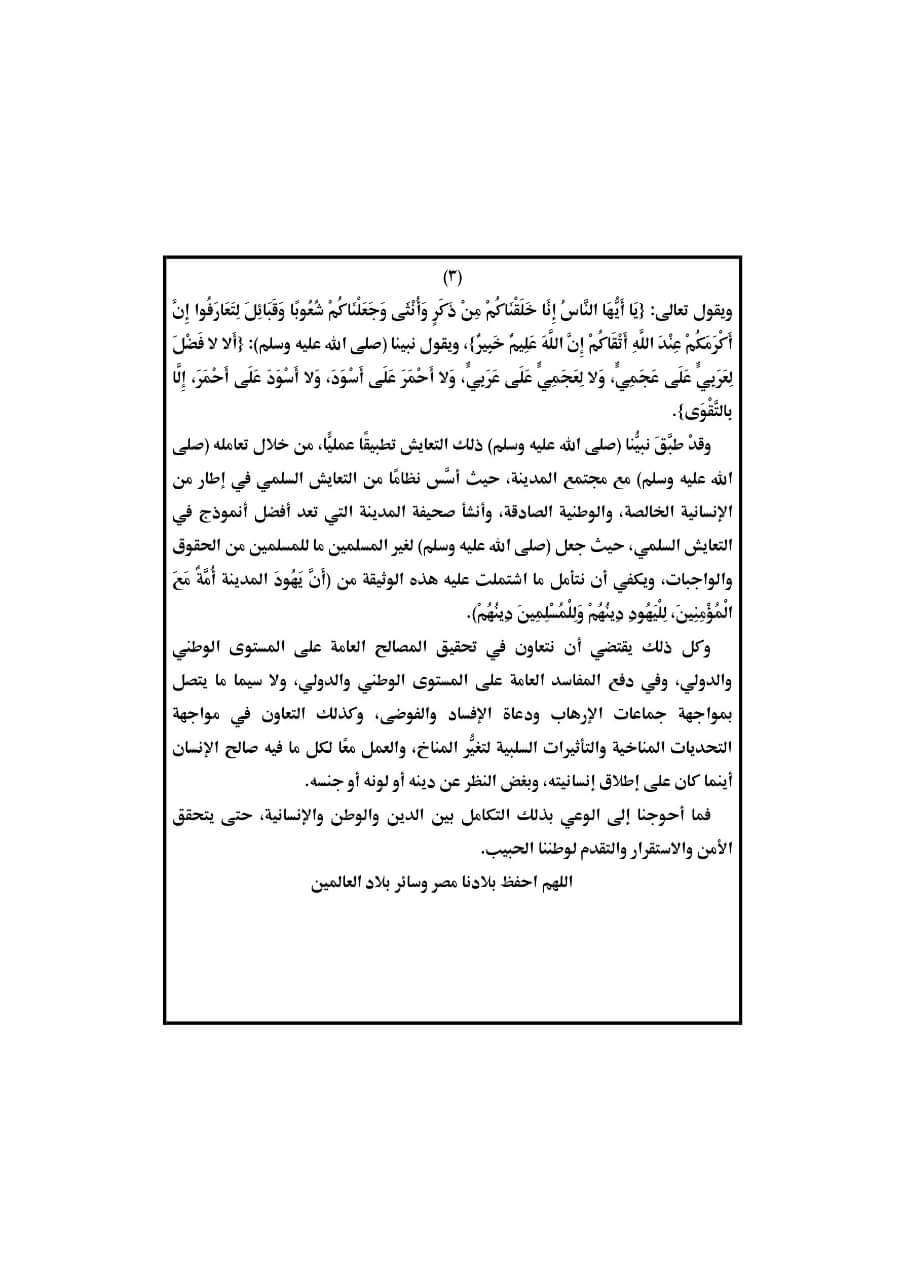 (٣)
ويقول تعالى: {يَا أَيُّهَا النَّاسُ إِنَّا خَلَقْنَاكُمْ مِنْ ذَكَرٍ وَأُنْثَى وَجَعَلْنَاكُمْ شُعُوبًا وَقَبَائِلَ لِتَعَارَفُوا إِنَّ
أَكْرَمَكُمْ عِنْدَ اللَّهِ أَتْقَاكُمْ إِنَّ اللَّهَ عَلِيمٌ خَبِيرٌ}، ويقول نبينا (صلى الله عليه وسلم): {أَلا لا فَضْلَ
لِعَرَبِيٍّ عَلَى عَجَمِيٍّ، وَلا لِعَجَمِيٍّ عَلَى عَرَبِيٍّ، وَلا أَحْمَرَ عَلَى أَسْوَدَ، وَلا أَسْوَدَ عَلَى أَحْمَرَ، إِلَّا
بالتَّقْوَى}.
وقدْ طبَّقَ نبيُّنا (صلى الله عليه وسلم) ذلك التعايش تطبيقًا عمليًّا، من خلال تعامله (صلى
الله عليه وسلم) مع مجتمع المدينة، حيث أسَّس نظامًا من التعايش السلمي في إطار من
الإنسانية الخالصة، والوطنية الصادقة، وأنشأ صحيفة المدينة التي تعد أفضل أنموذج في
التعايش السلمي، حيث جعل (صلى الله عليه وسلم) لغير المسلمين ما للمسلمين من الحقوق
والواجبات، ويكفي أن نتأمل ما اشتملت عليه هذه الوثيقة من (أَنَّ يَهُودَ المدينة أُمَّةٌ مَعَ
الْمُؤْمِنِينَ، لِلْيَهُودِ دِينُهُمْ وَلِلْمُسْلِمِينَ دِينُهُمْ).
وكل ذلك يقتضي أن نتعاون في تحقيق المصالح العامة على المستوى الوطني
والدولي، وفي دفع المفاسد العامة على المستوى الوطني والدولي، ولا سيما ما يتصل
بمواجهة جماعات الإرهاب ودعاة الإفساد والفوضى، وكذلك التعاون في مواجهة
التحديات المناخية والتأثيرات السلبية لتغيُّر المناخ، والعمل معًا لكل ما فيه صالح الإنسان
أينما كان على إطلاق إنسانيته، وبغض النظر عن دينه أو لونه أو جنسه.
فما أحوجنا إلى الوعي بذلك التكامل بين الدين والوطن والإنسانية، حتى يتحقق
الأمن والاستقرار والتقدم لوطننا الحبيب.
اللهم احفظ بلادنا مصر وسائر بلاد العالمين